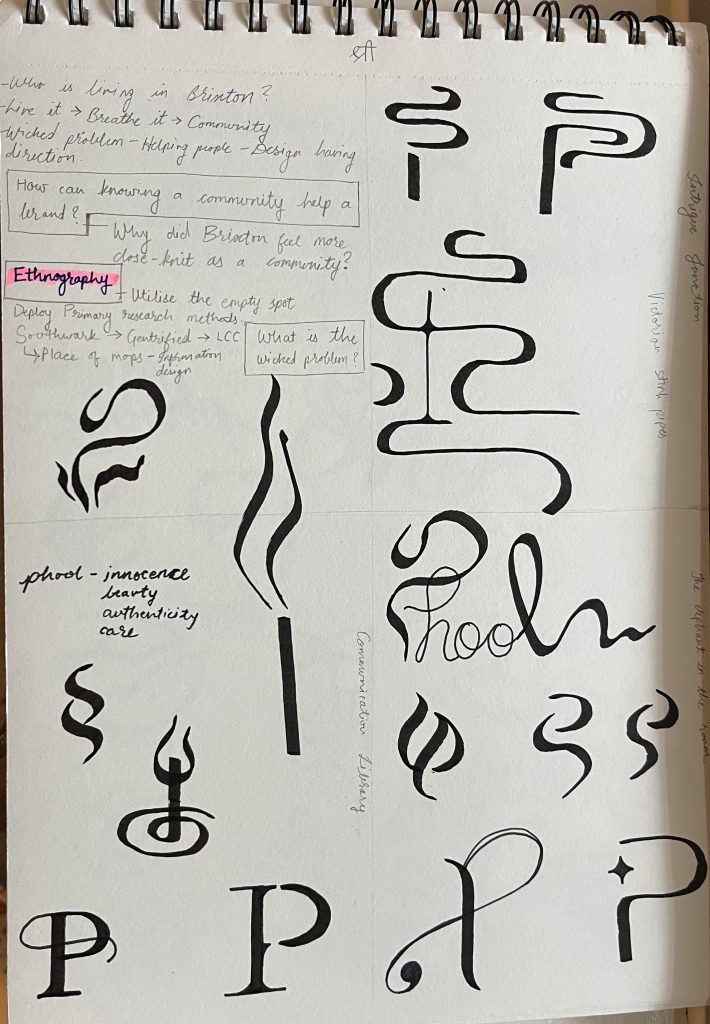 -Who is living in Brixton?
-Live it → Breathe it → Community
-Wicked problem - Helping people - Design having
direction.
How can knowing a community help a
brand?
Why did Brixton feel more
close-knit as a community?
Ethnography
- Utilise the empty spot
Deploy Primary research methods.
Southwark → Gentrified → LCC
↳ Place of mops - Information
design
What is the
wicked problem?
Intrigue function
Victorian stink pipes
phool - innocence
beauty
authenticity
care
Phool
The elephant in the room
Communication Library
P
P
P